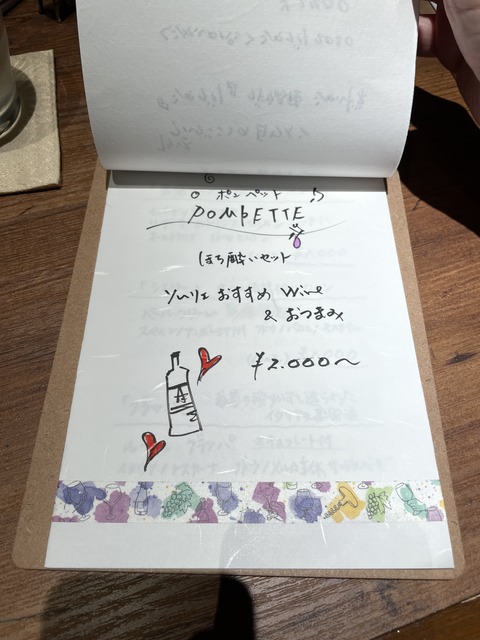 ポンペット
POMPETTE
ほろ酔いセット
ソムリエ おすすめ Wine
& おつまみ
¥2.000〜